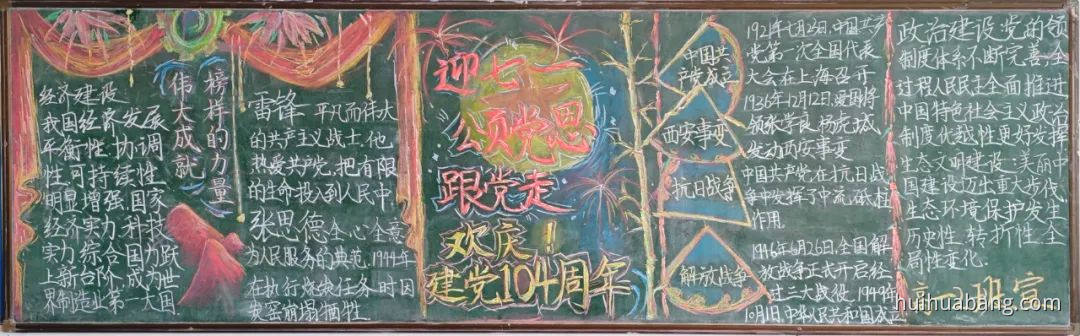 经济建设
我国经济发展
平衡性、协调
性、可持续性
明显增强国家
经济实力、科技
实力、综合国力跃
上新台阶,成为世
界制造业第一大国
伟大成就
榜样的力量
雷锋 平凡而伟大
的共产主义战士,他
热爱共产党,把有限
的生命投入到人民中
张思德全心全意
为人民服务的典范,1944年
在执行烧炭任务时因
炭窑崩塌牺牲
迎七一
公颂党恩
跟党走
欢庆!
建党104周年
中国共
产党成立
西安事变
抗日战争
解放战争
1921年7月23日,中国共产
党第一次全国代表
大会在上海召开
1936年12月12日,爱国将
领张学良、杨虎城
发动西安事变
中国共产党在抗日战
争中发挥了中流砥柱
作用
1946年6月26日,全国解
放战争正式开启经
过三大战役,1949年
10月1日中华人民共和国成立
政治建设:党的领
制度体系不断完善,全
过程人民民主全面推进
中国特色社会主义政治
制度优越性更好发挥
生态文明建设:美丽中
国建设迈出重大步伐
生态环境保护发生
历史性、转折性、全
局性变化.
高一2班宣
huihuabang.com